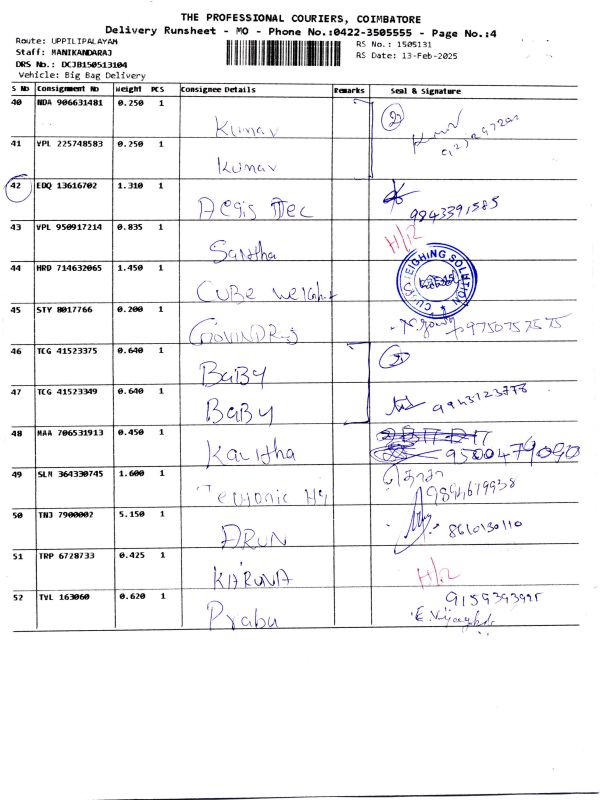 THE PROFESSIONAL COURIERS, COIMBATORE
Delivery Runsheet - MO - Phone No.:0422-3505555 - Page No.:4
Route: UPPILIPALAYAM
RS No.: 1505131
Staff: MANIKANDARAJ
RS Date: 13-Feb-2025
DRS No.: DCJB150513104
Vehicle: Big Bag Delivery
S No Consignment No Weight PCS Consignee Details Remarks Seal & Signature
40 NDA 906631481 0.250 1 Kumar 2
41 VPL 225748583 0.250 1 Kumar
42 EDQ 13616702 1.310 1 Aegis Tec 9843391585
43 VPL 950917214 0.835 1 Santha H/R
44 HRD 714632065 1.450 1 CUBE Weight
45 STY 8017766 0.200 1 9750757575
46 TCG 41523375 0.640 1 BaBy 2
47 TCG 41523349 0.640 1 BaBy 9943123778
48 MAA 706531913 0.450 1 Kavitha 9500479090
49 SLM 364330745 1.600 1 9894679938
50 TNJ 7900002 5.150 1 ARUN 8610130110
51 TRP 6728733 0.425 1 KARUNA H/R
52 TVL 163060 0.620 1 Prabu 9159393925